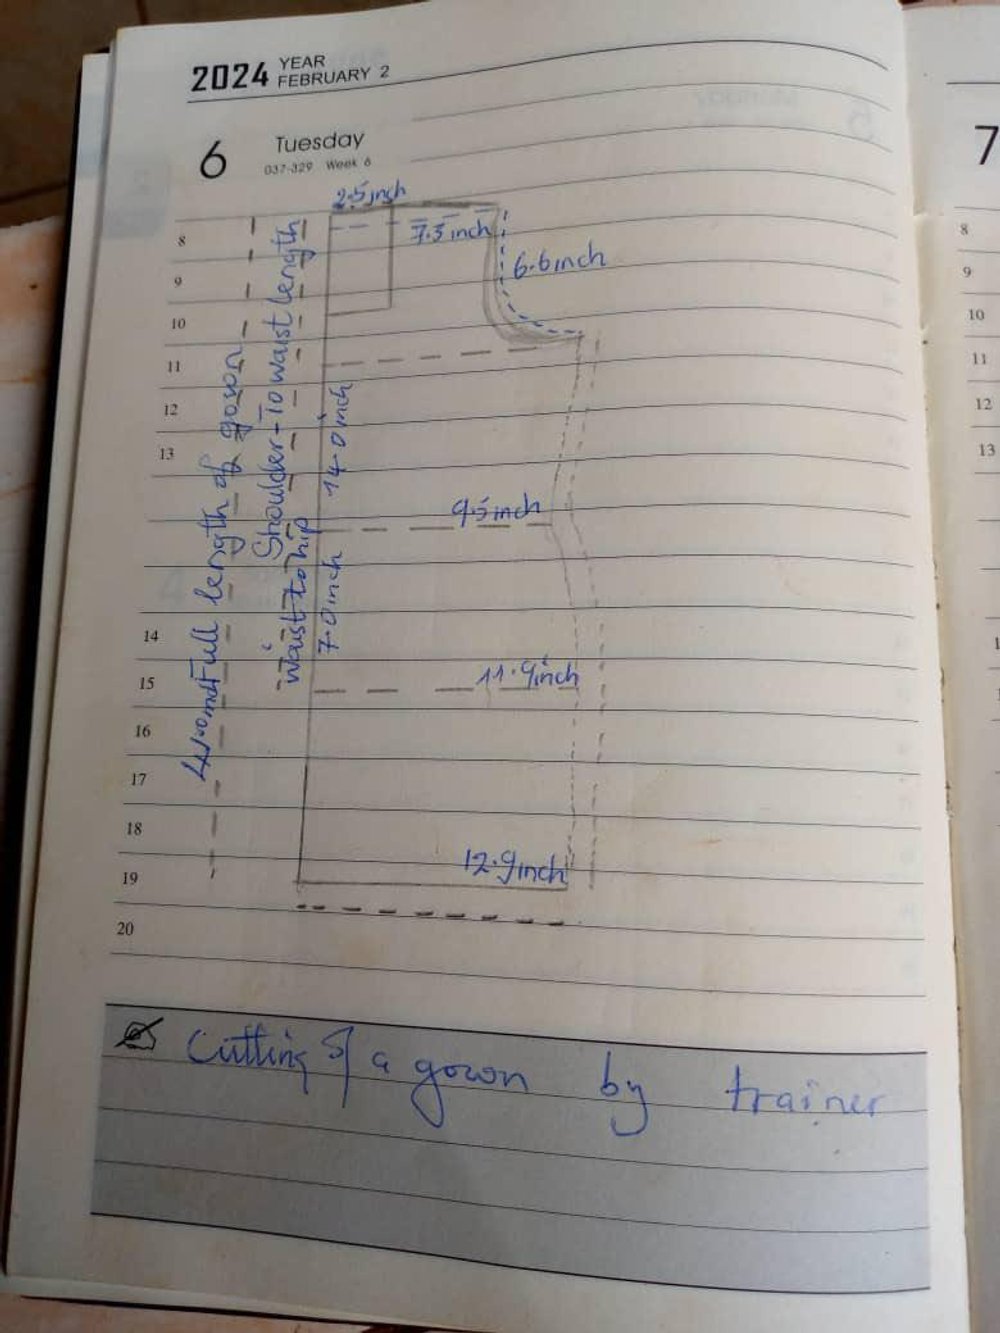 2024 YEAR
FEBRUARY 2
6 Tuesday
037-329 Week 6
7
2.5inch
7.5inch
6.6inch
8
9
10
11
12
13
14
15
16
17
18
19
20
Full length of gown
Shoulder-To waist length
14.0inch
Waist to hip
7.0inch
9.5inch
11.9inch
12.9inch
Cutting of a gown by trainer
8
9
10
11
12
13